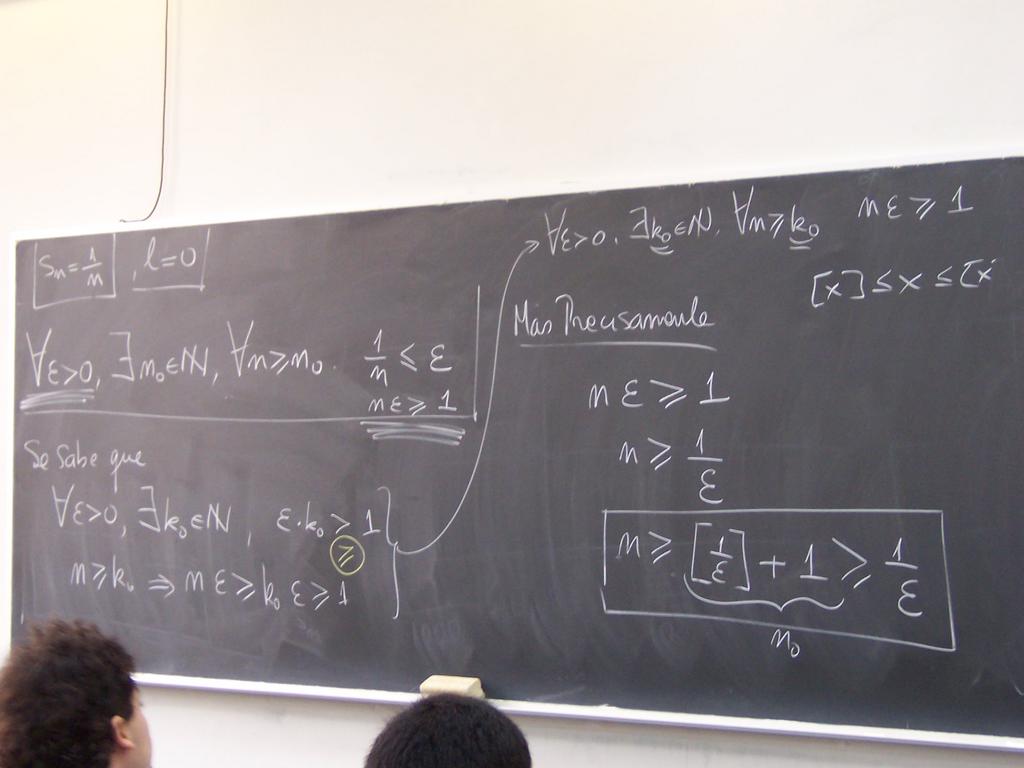 Sn = 1/n , l = 0
∀ε>0, ∃n₀∈ℕ, ∀n≥n₀. 1/n ≤ ε
nε ≥ 1
Se sabe que
∀ε>0, ∃k₀∈ℕ, ε·k₀ > 1
≥
n≥k₀ ⇒ nε ≥ k₀ε ≥ 1
∀ε>0. ∃k₀∈ℕ. ∀n≥k₀ nε ≥ 1
[x] ≤ x ≤ [x
Mas Precisamente
nε ≥ 1
n ≥ 1/ε
n ≥ [1/ε] + 1 ≥ 1/ε
n₀